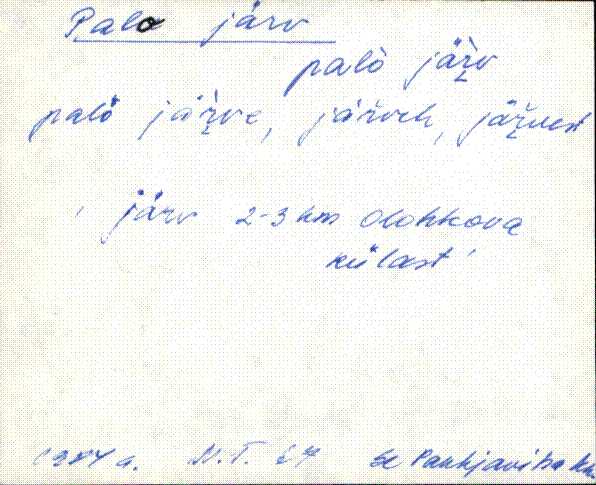 Palo järv
palò järv
palò järve, järveh, järvest
' järv 2-3 km Olohkova
külast'
1984 a. N.T. 27 Se Pankjavitsa kn.